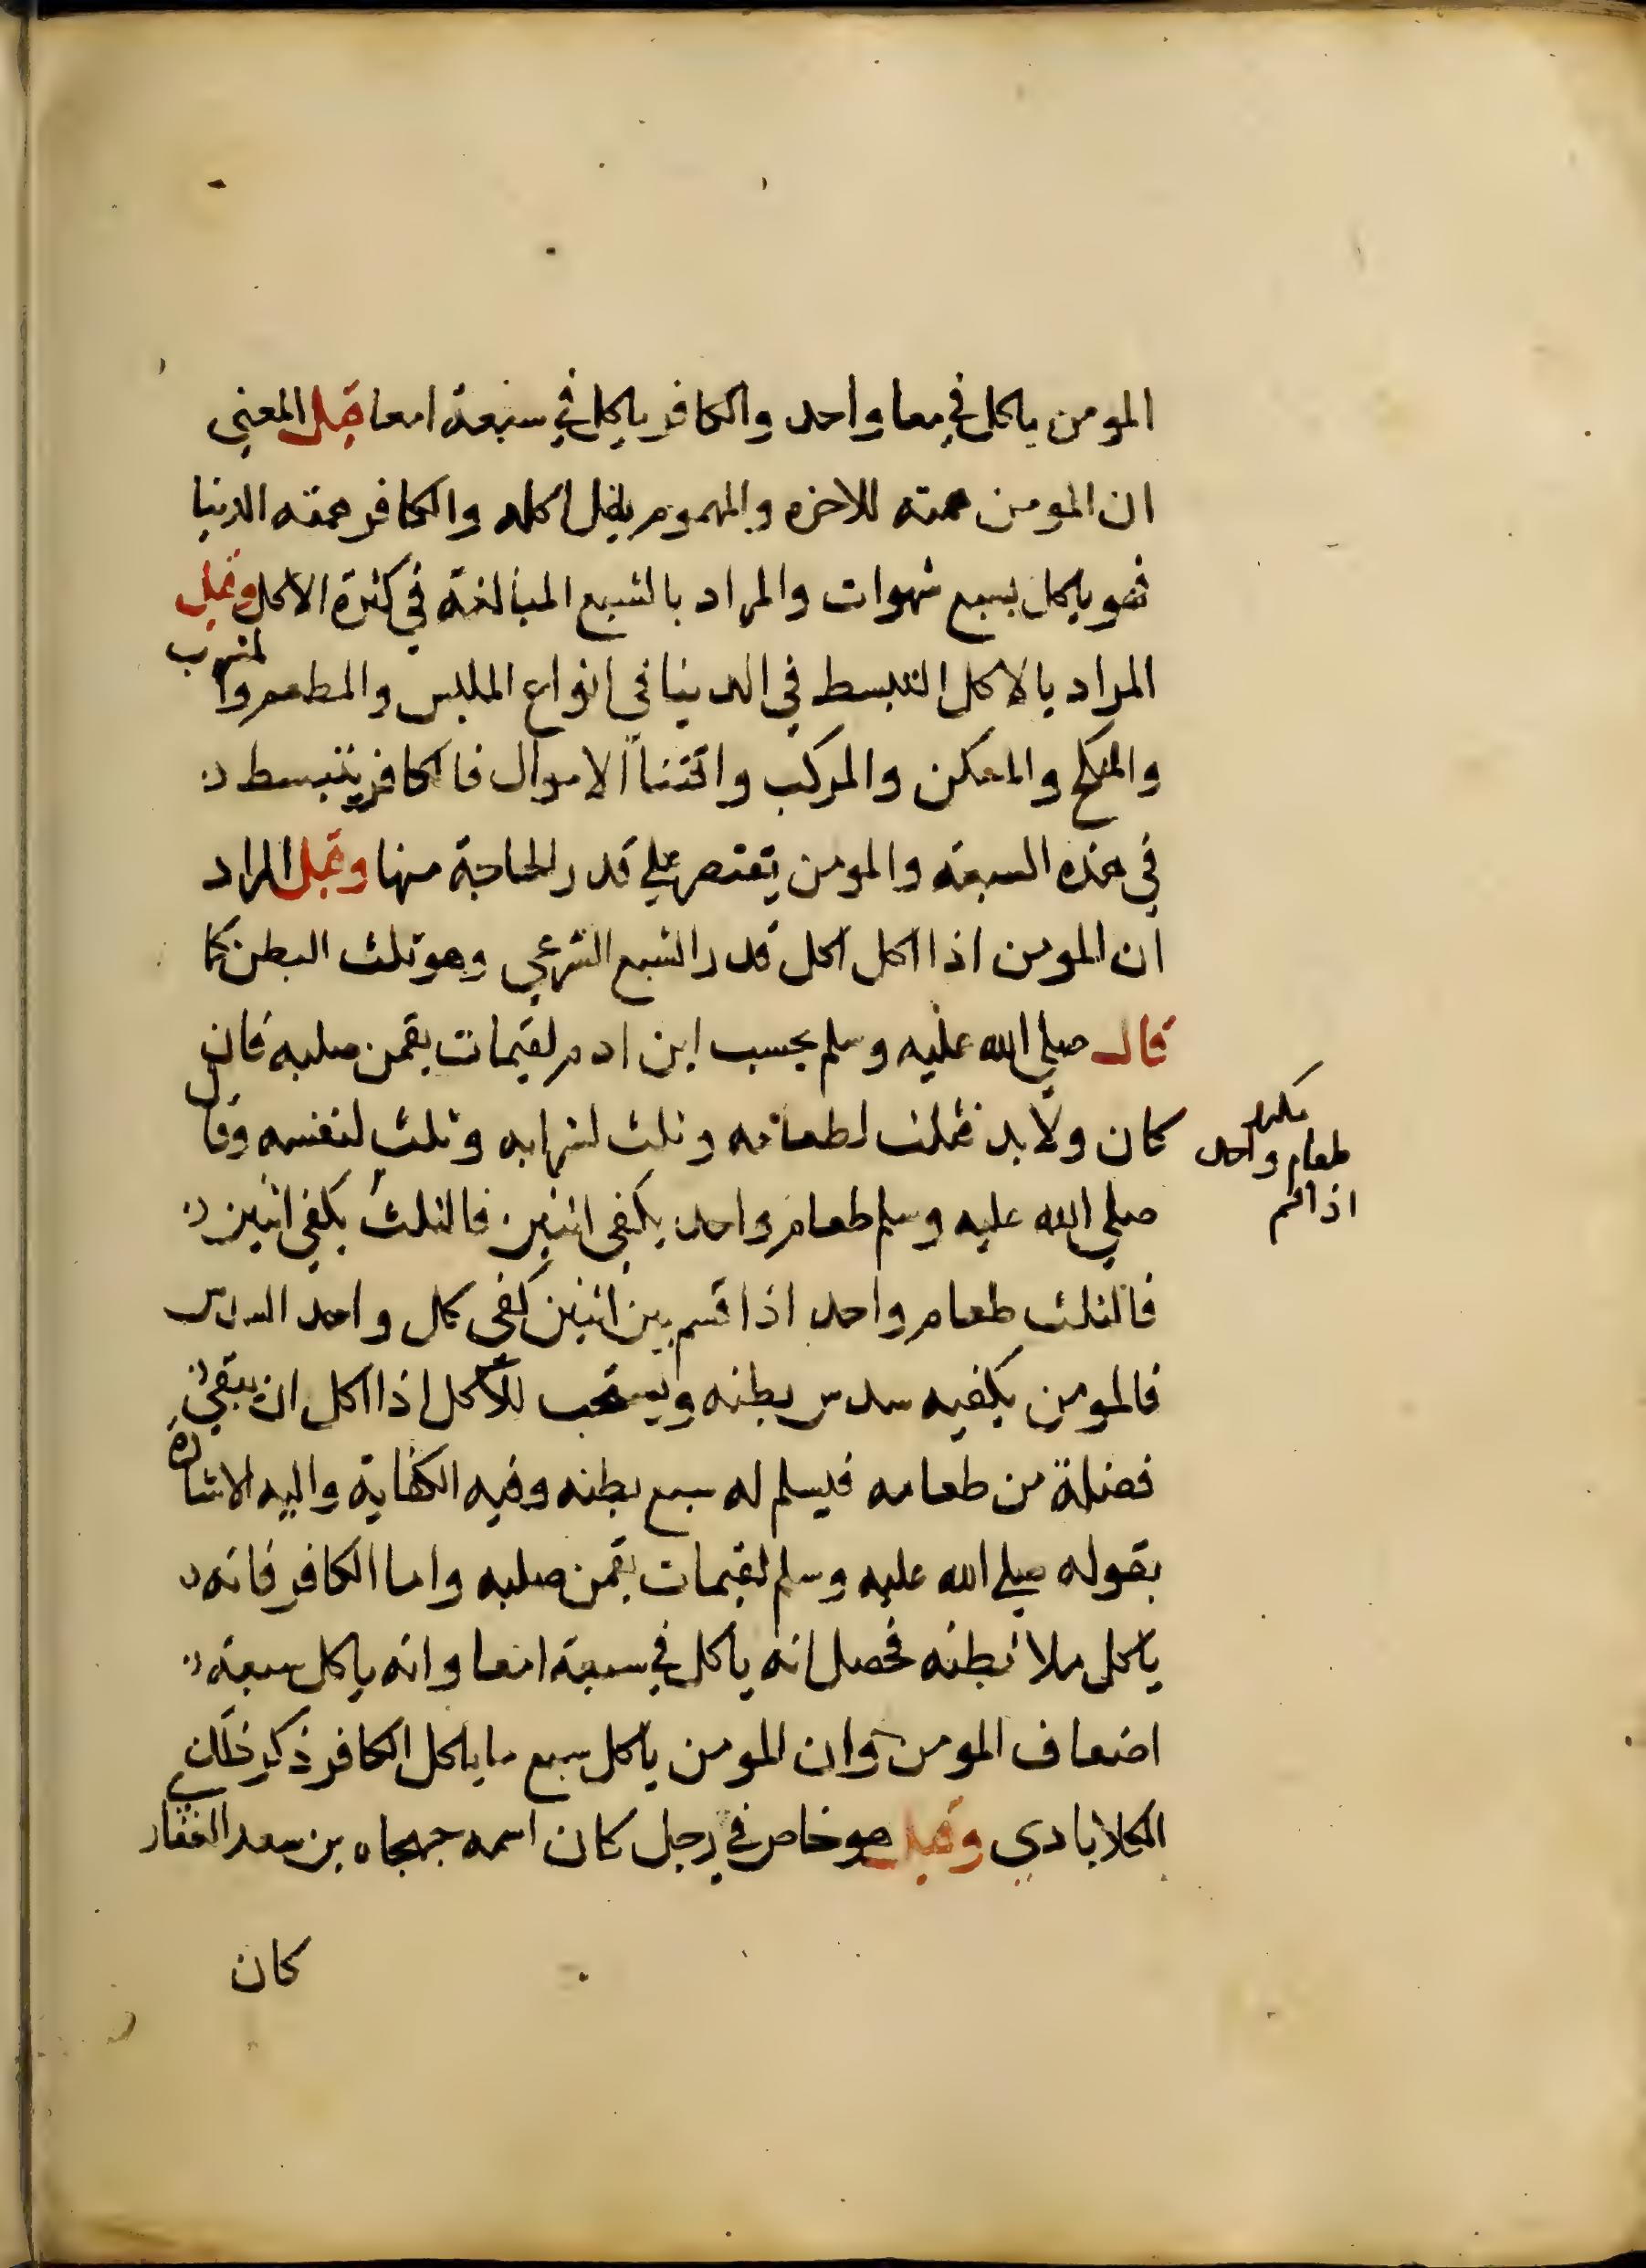 المومن ياكل في معا واحد والكافر ياكل في سبعة امعا قيل المعني
ان المومن همته للاخره والمهموم يقل اكله والكافر همته الدنيا
فهو ياكل بسبع شهوات والمراد بالسبع المبالغة في كثرة الاكل وقيل
المراد بالاكل التبسط في الدنيا في انواع الملبس والمطعم والمشرب
والمنكح والمسكن والمركب واقتنا الاموال فالكافر يتبسط
في هذه السبعة والمومن يقتصر علي قدر الحاجة منها وقيل المراد
ان المومن اذا اكل اكل قدر الشبع الشرعي وهو ثلث البطن كما
قال صلي الله عليه وسلم بحسب ابن ادم لقيمات يقمن صلبه فان
كان ولا بد فثلث لطعامه وثلث لشرابه وثلث لنفسه وقال
طعام واحد
اذا قسم
صلي الله عليه وسلم طعام واحد يكفي اثنين فالثلث يكفي اثنين
فالثلث طعام واحد اذا قسم بين اثنين كفي كل واحد السدس
فالمومن يكفيه سدس بطنه ويستحب للاكل اذا اكل ان يبقي
فضلة من طعامه فيسلم له سبع بطنه وفيه الكفاية واليه الاشارة
بقوله صلي الله عليه وسلم لقيمات يقمن صلبه واما الكافر فانه
ياكل ملا بطنه فحصل انه ياكل في سبعة امعا وانه ياكل سبعة
اضعاف المومن وان المومن ياكل سبع ما ياكل الكافر ذكر ذلك
الكلابادي وقيل هو خاص في رجل كان اسمه جهجاه بن سعد الغفار
كان